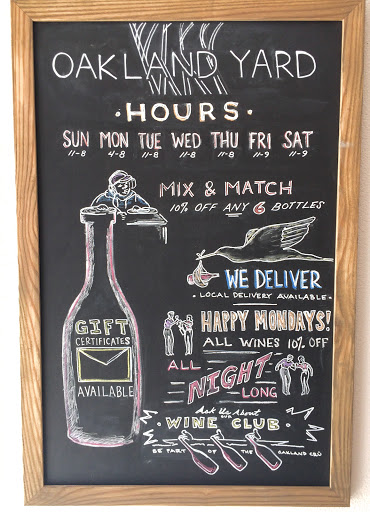 OAKLAND YARD
HOURS
SUN MON TUE WED THU FRI SAT
11-8 4-8 11-8 11-8 11-8 11-9 11-9
MIX & MATCH
10% OFF ANY 6 BOTTLES
WE DELIVER
LOCAL DELIVERY AVAILABLE
GIFT
CERTIFICATES
AVAILABLE
HAPPY MONDAYS!
ALL WINES 10% OFF
ALL
NIGHT
LONG
Ask Us About
OUR
WINE CLUB
BE PART OF THE OAKLAND CRÜ